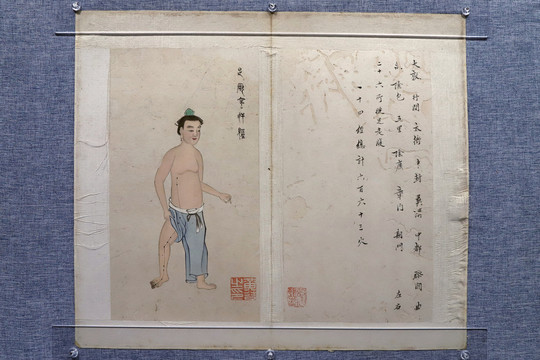 大敦 行間 太衝 中封 蠡溝 中都 膝關 曲
泉 陰包 五里 陰廉 章門 期門 左右
二十六穴從足走腹
一十四經總計六百六十三穴
足厥陰肝經